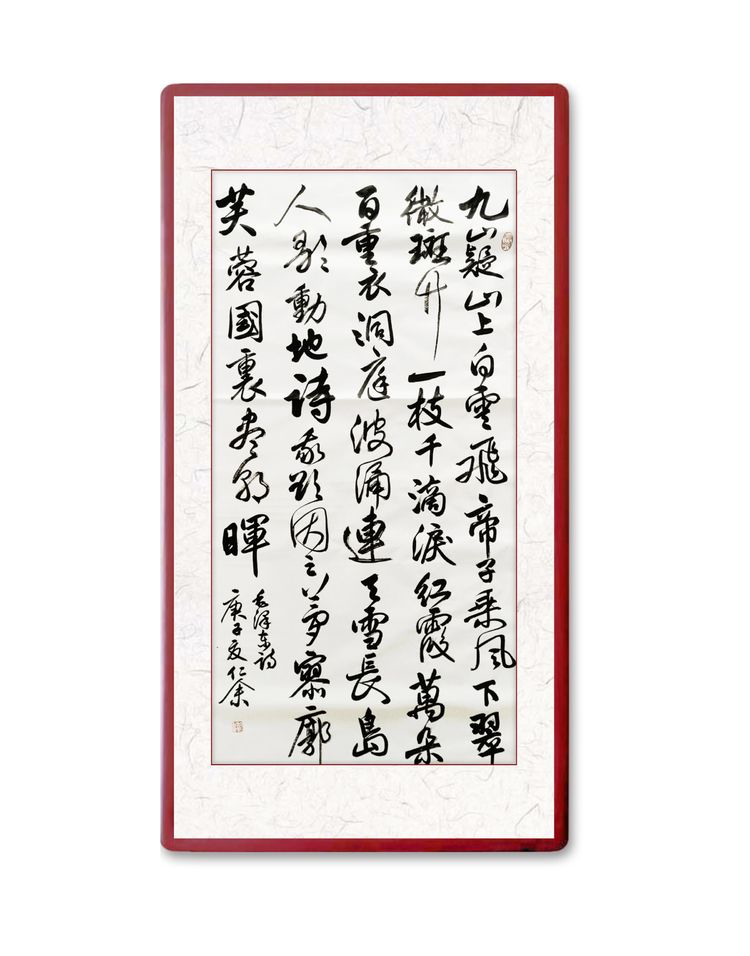 九嶷山上白雲飛帝子乘风下翠
微斑竹一枝千滴淚红霞萬朵
百重衣洞庭波涌連天雪長島
人歌動地诗我欲因之夢寥廓
芙蓉國裏尽朝暉
毛泽东诗
庚子夏仁余